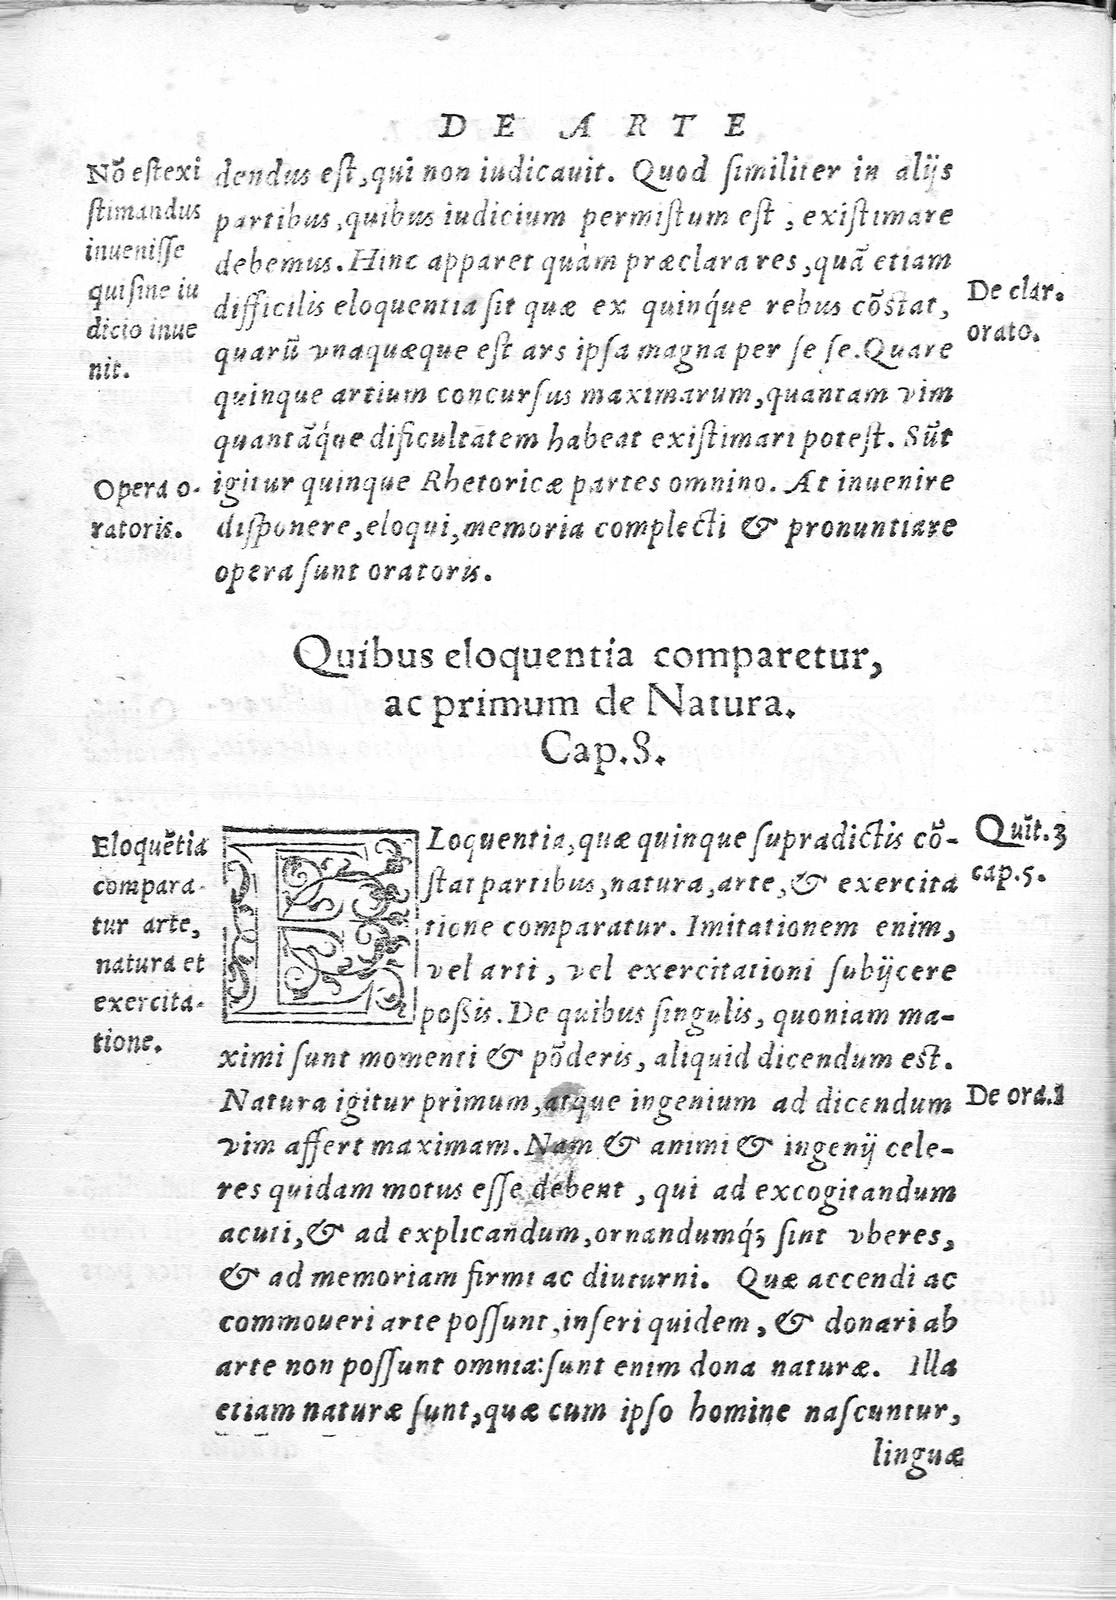 DE ARTE
Nõ est exi
stimandus
inuenisse
qui sine iu
dicio inue
nit.
dendus est, qui non iudicauit. Quod similiter in alijs
partibus, quibus iudicium permistum est, existimare
debemus. Hinc apparet quàm præclara res, quã etiam
difficilis eloquentia sit quæ ex quinq́ue rebus cõstat,
quarũ vnaquæque est ars ipsa magna per se se. Quare
quinque artium concursus maximarum, quantam vim
quantãq́ue dificultatem habeat existimari potest. Sũt
igitur quinque Rhetoricæ partes omnino. At inuenire
disponere, eloqui, memoria complecti & pronuntiare
opera sunt oratoris.
De clar.
orato.
Opera o-
ratoris.
Quibus eloquentia comparetur,
ac primum de Natura.
Cap. 8.
Eloquẽtia
compara-
tur arte,
natura et
exercita-
tione.
ELoquentia, quæ quinque supradictis cõ-
stat partibus, natura, arte, & exercita
tione comparatur. Imitationem enim,
vel arti, vel exercitationi subijcere
possis. De quibus singulis, quoniam ma-
ximi sunt momenti & põderis, aliquid dicendum est.
Natura igitur primum, atque ingenium ad dicendum
vim affert maximam. Nam & animi & ingenij cele-
res quidam motus esse debent, qui ad excogitandum
acuti, & ad explicandum, ornandumq́ꝫ sint vberes,
& ad memoriam firmi ac diuturni. Quæ accendi ac
commoueri arte possunt, inseri quidem, & donari ab
arte non possunt omnia: sunt enim dona naturæ. Illa
etiam naturæ sunt, quæ cum ipso homine nascuntur,
linguæ
Quĩt. 3
cap. 5.
De ora. 1